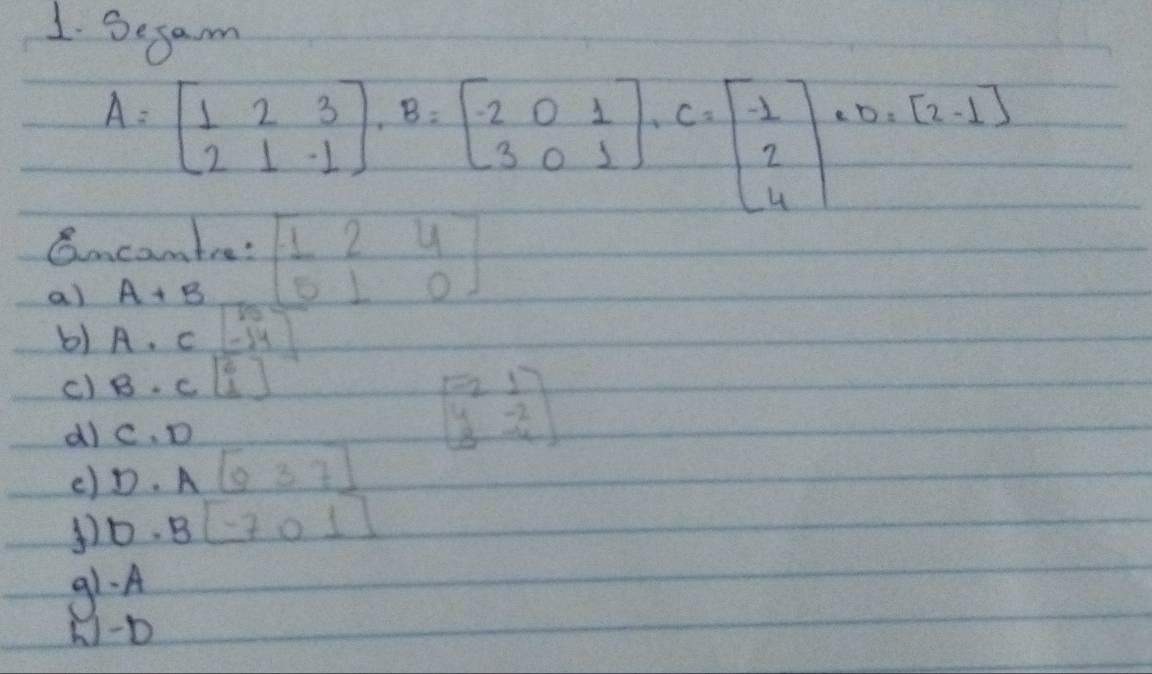 1. Sejam
A = [1 2 3; 2 1 -1], B = [-2 0 1; 3 0 1], C = [-1; 2; 4] e D = [2 -1]
Encontre:
a) A + B [-1 2 4; 5 1 0]
b) A . C [15; -14]
c) B . C
d) C . D [-2 1; 4 -2; 8 -4]
e) D . A [0 3 7]
f) D . B [-7 0 1]
g) -A
h) -D